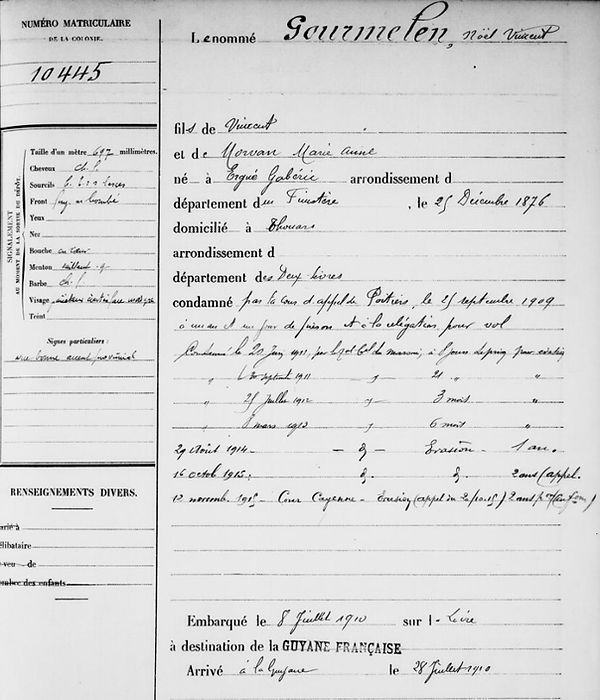 NUMÉRO MATRICULAIRE
DE LA COLONIE.
10445
SIGNALEMENT
AU MOMENT DE LA SORTIE DU DÉPÔT.
Taille d'un mètre 697 millimètres.
Cheveux ch. f.
Sourcils
Front
Yeux
Nez
Bouche
Menton saillant
Barbe ch. f.
Visage
Teint
Signes particuliers :
accent provincial
RENSEIGNEMENTS DIVERS.
arié à
élibataire
veu de
ombre des enfants
Le nommé Gourmelen, Noël Vincent
fils de Vincent
et de Morvan Marie Anne
né à Ergué Gabéric arrondissement d
département du Finistère, le 25 Décembre 1876
domicilié à Thouars
arrondissement d
département des Deux-Sèvres
condamné par la Cour d'appel de Poitiers, le 25 septembre 1909
à un an et un jour de prison et à la relégation, pour vol
Condamné le 20 1911, par le du maroni, à 8 jours de prison pour évasion
" 20 septembre 1911 - 21 " "
" 25 Juillet 1912 3 mois "
" 8 mars 1913 6 mois "
29 Août 1914 - Evasion - 1 an.
16 octob 1915 2 ans (appel.
12 novemb. 1915 - Cour Cayenne - Evasion (appel du 2/10.15) 2 ans
Embarqué le 8 Juillet 1910 sur l- Loire
à destination de la GUYANE FRANÇAISE
Arrivé à la Guyane le 28 Juillet 1910